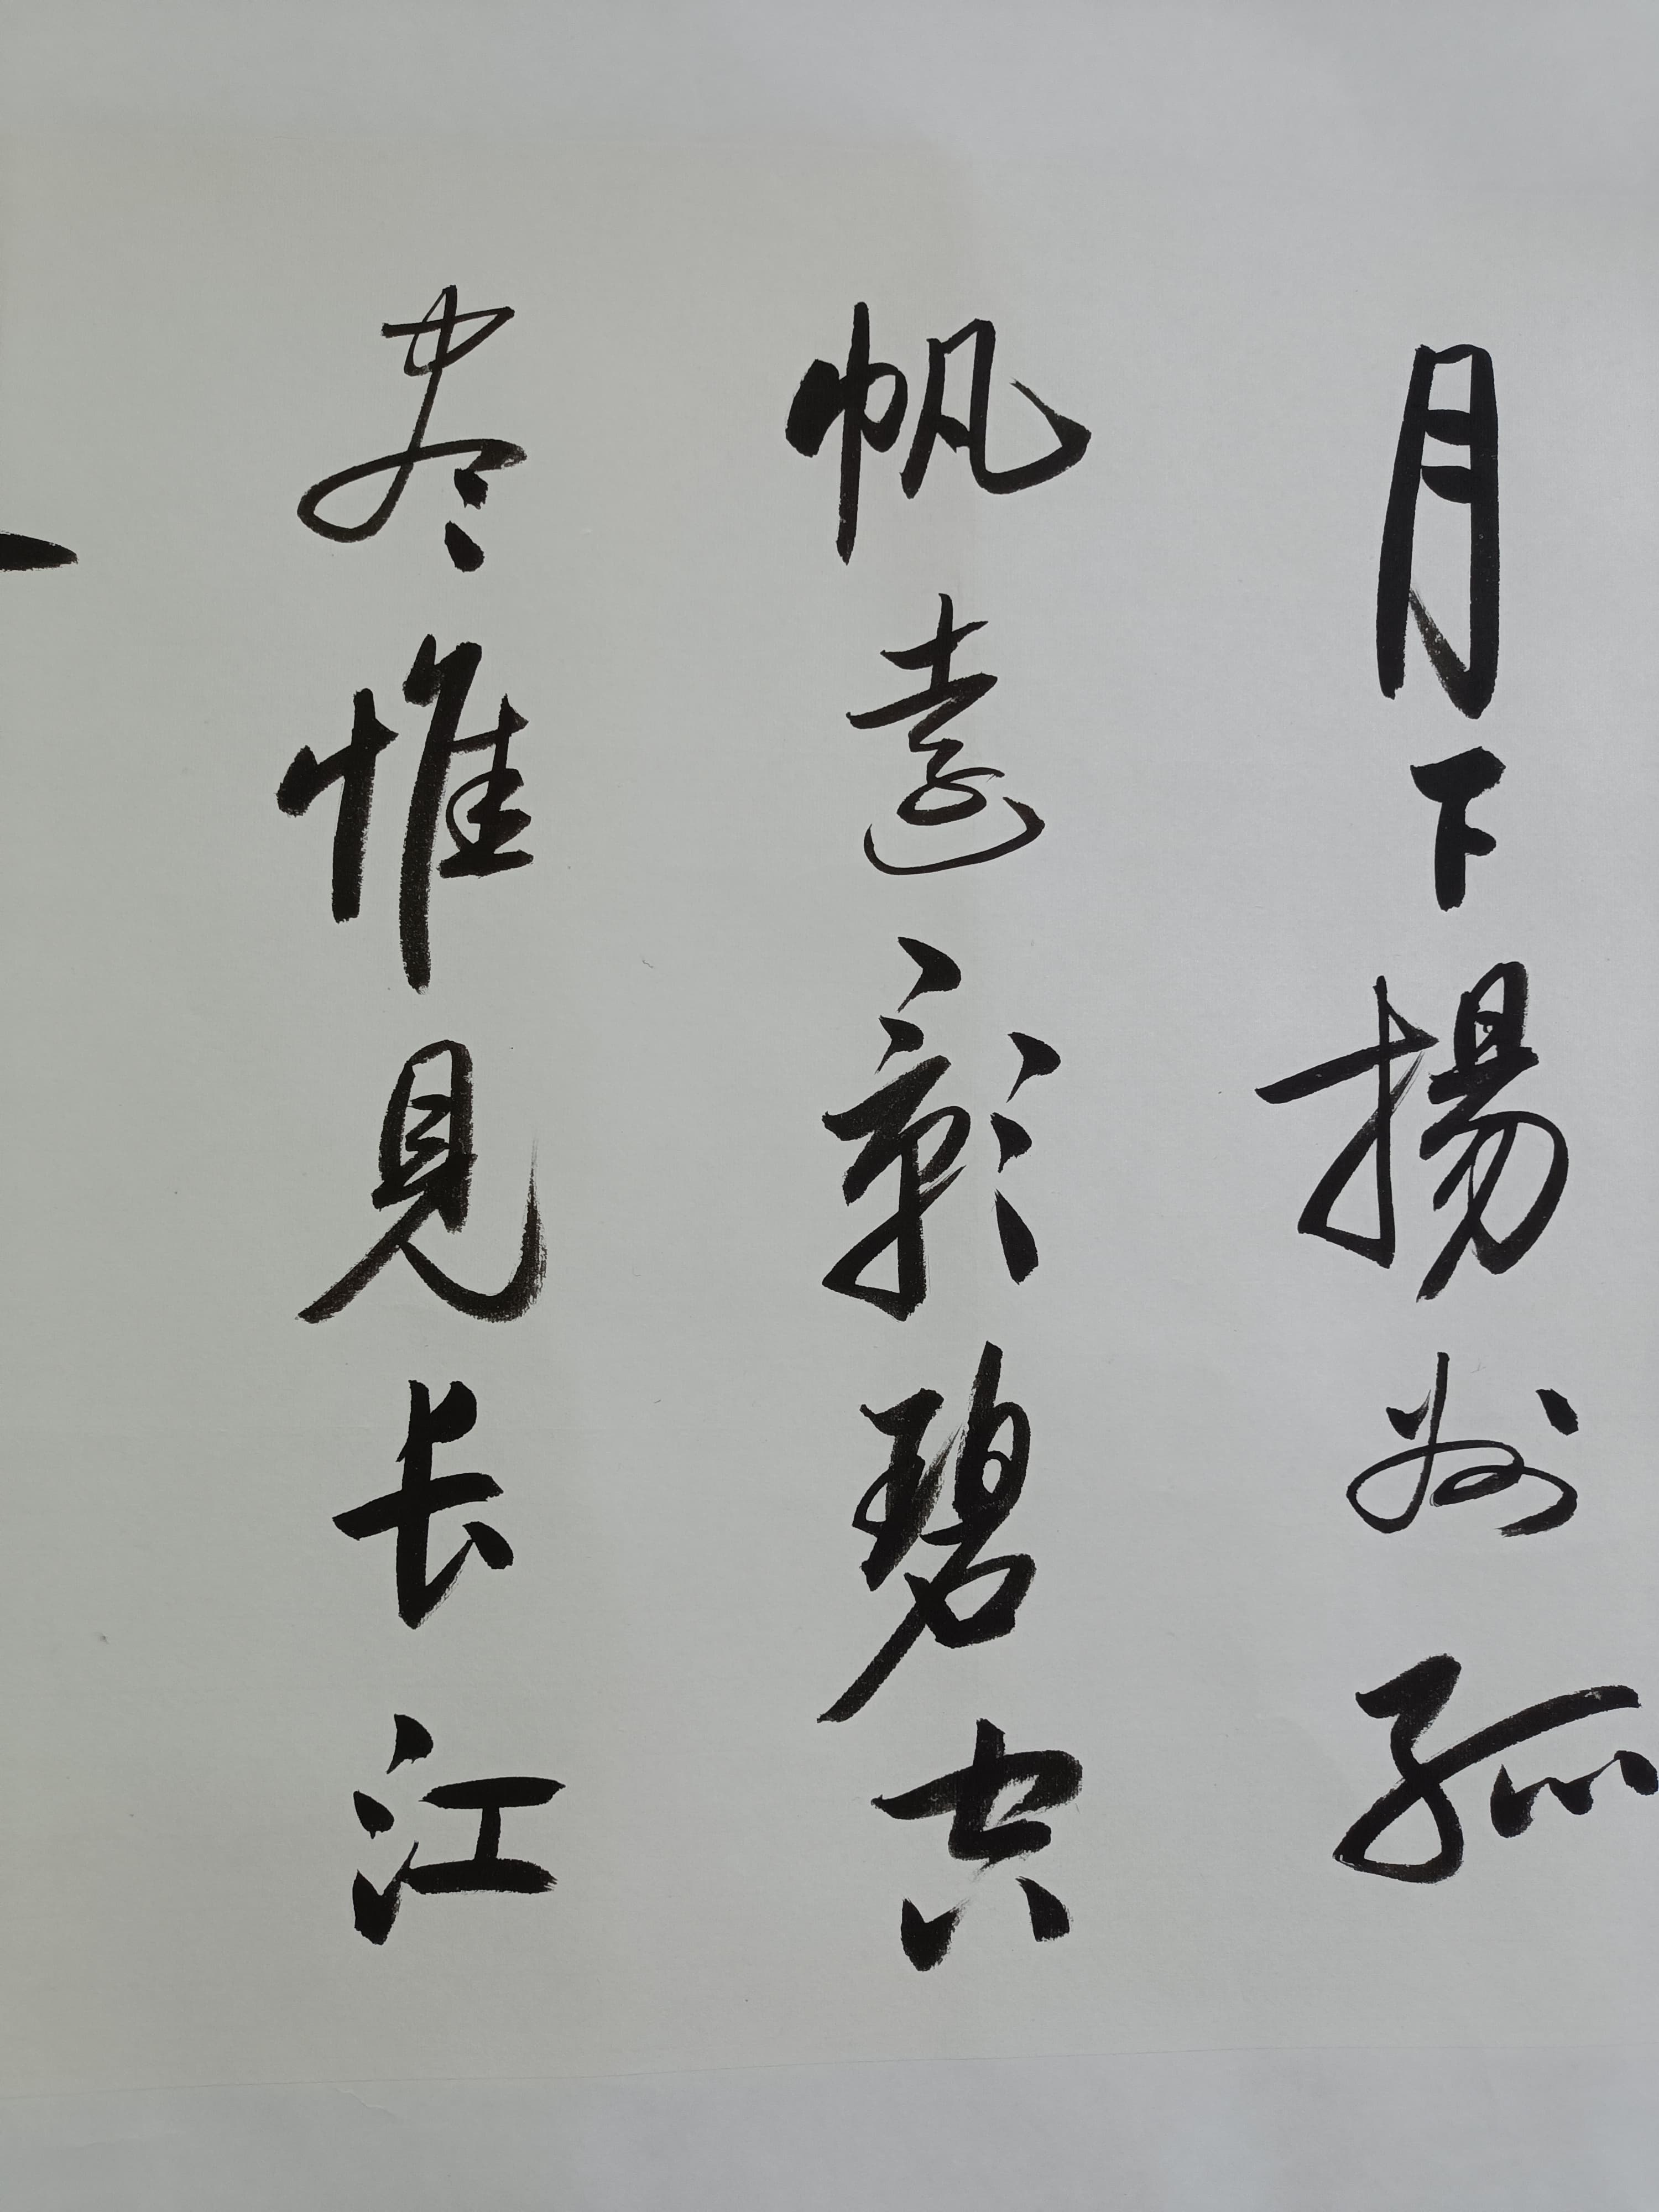 月下揚州孤
帆遠影碧空
尽惟見长江